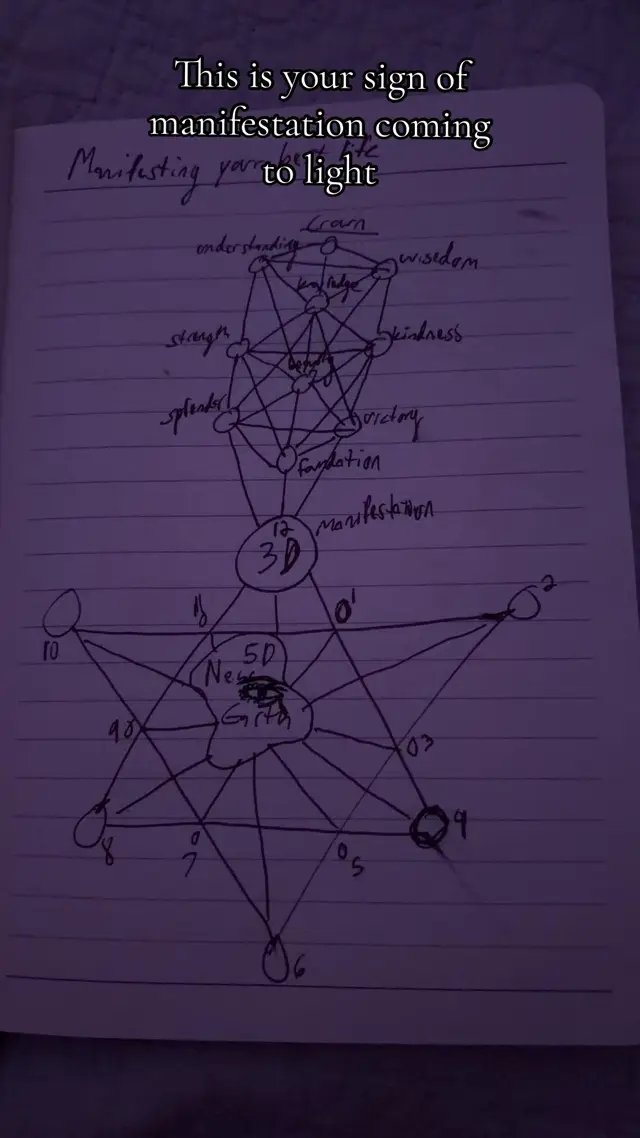 This is your sign of
manifestation coming
to light
Manifesting your best life
Crown
understanding
wisedom
knowledge
strength
kindness
beauty
splender
victory
foundation
manifestation
12
3D
11
1
2
10
5D
New
Grth
98
3
8
9
7
5
6